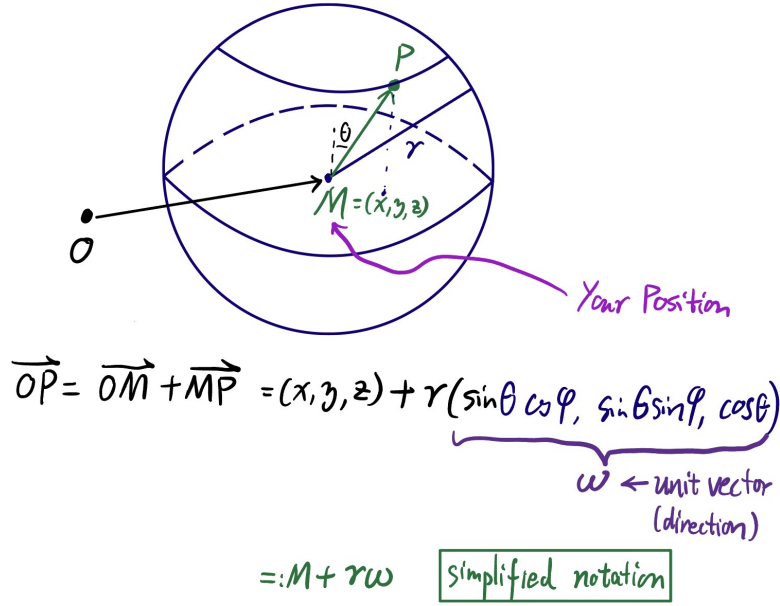 P
θ
r
M=(x,y,z)
O
Your Position
\overrightarrow{OP} = \overrightarrow{OM} + \overrightarrow{MP} = (x,y,z) + r(sinθ cosφ, sinθ sinφ, cosθ)
ω ← unit vector
(direction)
=: M + rω simplified notation